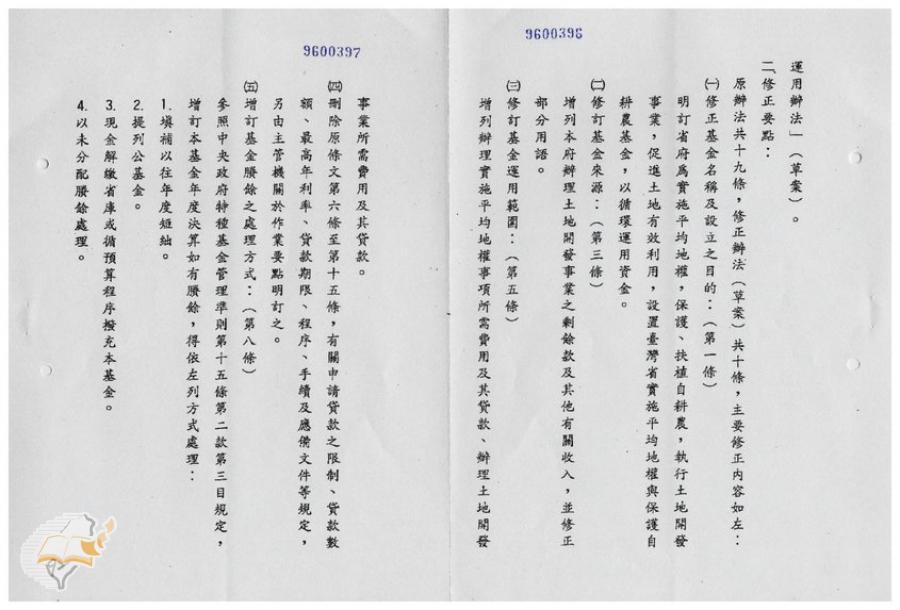 9600396
運用辦法」（草案）。
二、修正要點：
原辦法共十九條，修正辦法（草案）共十條，主要修正內容如左：
㈠修正基金名稱及設立之目的：（第一條）
明訂省府爲實施平均地權，保護、扶植自耕農，執行土地開發
事業，促進土地有效利用，設置臺灣省實施平均地權與保護自
耕農基金，以循環運用資金。
㈡修訂基金來源：（第三條）
增列本府辦理土地開發事業之剩餘款及其他有關收入，並修正
部分用語。
㈢修訂基金運用範圍：（第五條）
增列辦理實施平均地權事項所需費用及其貸款、辦理土地開發
9600397
事業所需費用及其貸款。
㈣刪除原條文第六條至第十五條，有關申請貸款之限制、貸款數
額、最高年利率、貸款期限、程序、手續及應備文件等規定，
另由主管機關於作業要點明訂之。
㈤增訂基金賸餘之處理方式：（第八條）
參照中央政府特種基金管理準則第十五條第二款第三目規定，
增訂本基金年度決算如有賸餘，得依左列方式處理：
1.填補以往年度短絀。
2.提列公基金。
3.現金解繳省庫或循預算程序撥充本基金。
4.以未分配賸餘處理。